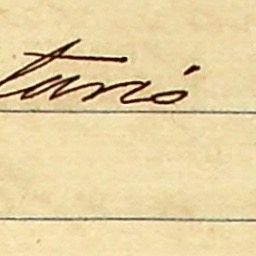 tanió